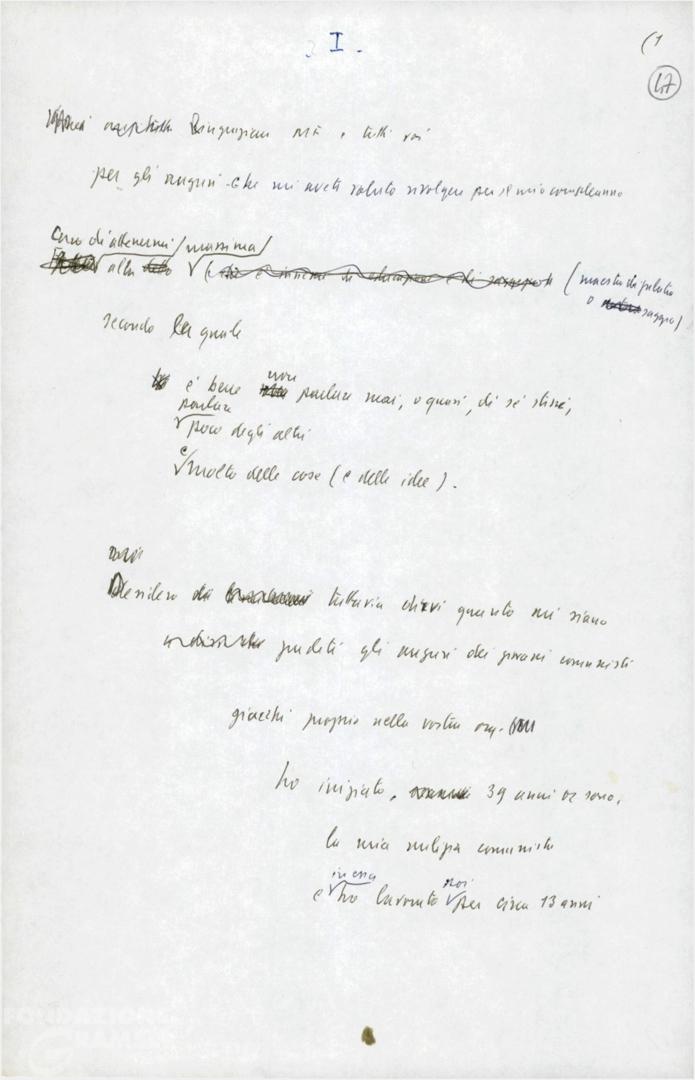 I.
(1
47
ringraziare voi e tutti voi
per gli auguri che mi avete voluto rivolgere per il mio compleanno
Cerco di attenermi / massima /
alla (maestra di
o saggio)
secondo la quale
è bene non parlare mai, o quasi, di sé stessi,
parlare
poco degli altri
e
molto delle cose (e delle idee).
Desidero tuttavia dirvi quanto mi siano
graditi gli auguri dei giovani comunisti
giacché proprio nella vostra org.
ho iniziato, 39 anni or sono,
la mia milizia comunista
in essa poi
e ho lavorato per circa 13 anni
FONDAZIONE
GRAMSCI